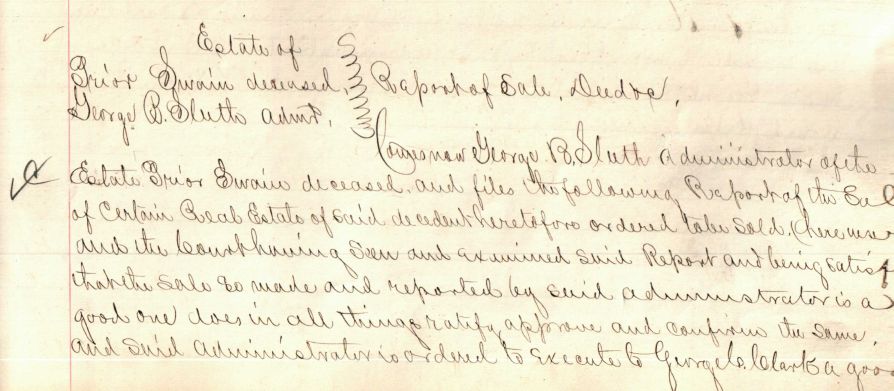 Estate of
Prior Swain deceased, Report of Sale, Deed &c,
George B. Sluth Admr,
Comes now George B. Sluth Administrator of the
Estate Prior Swain deceased, and files the following Report of the Sal
of Certain Real Estate of said decedent heretofore ordered to be Sold, (here inse
and the Court having Seen and examined said Report and being satisf
that the Sale so made and reported by said administrator is a
good one does in all things ratify, approve and confirm the same,
and said administrator is ordered to execute to George C. Clark a good